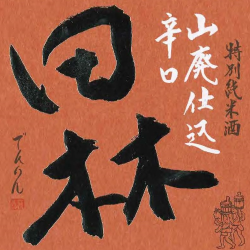 特別純米酒
山廃仕込
辛口
田林
でんりん